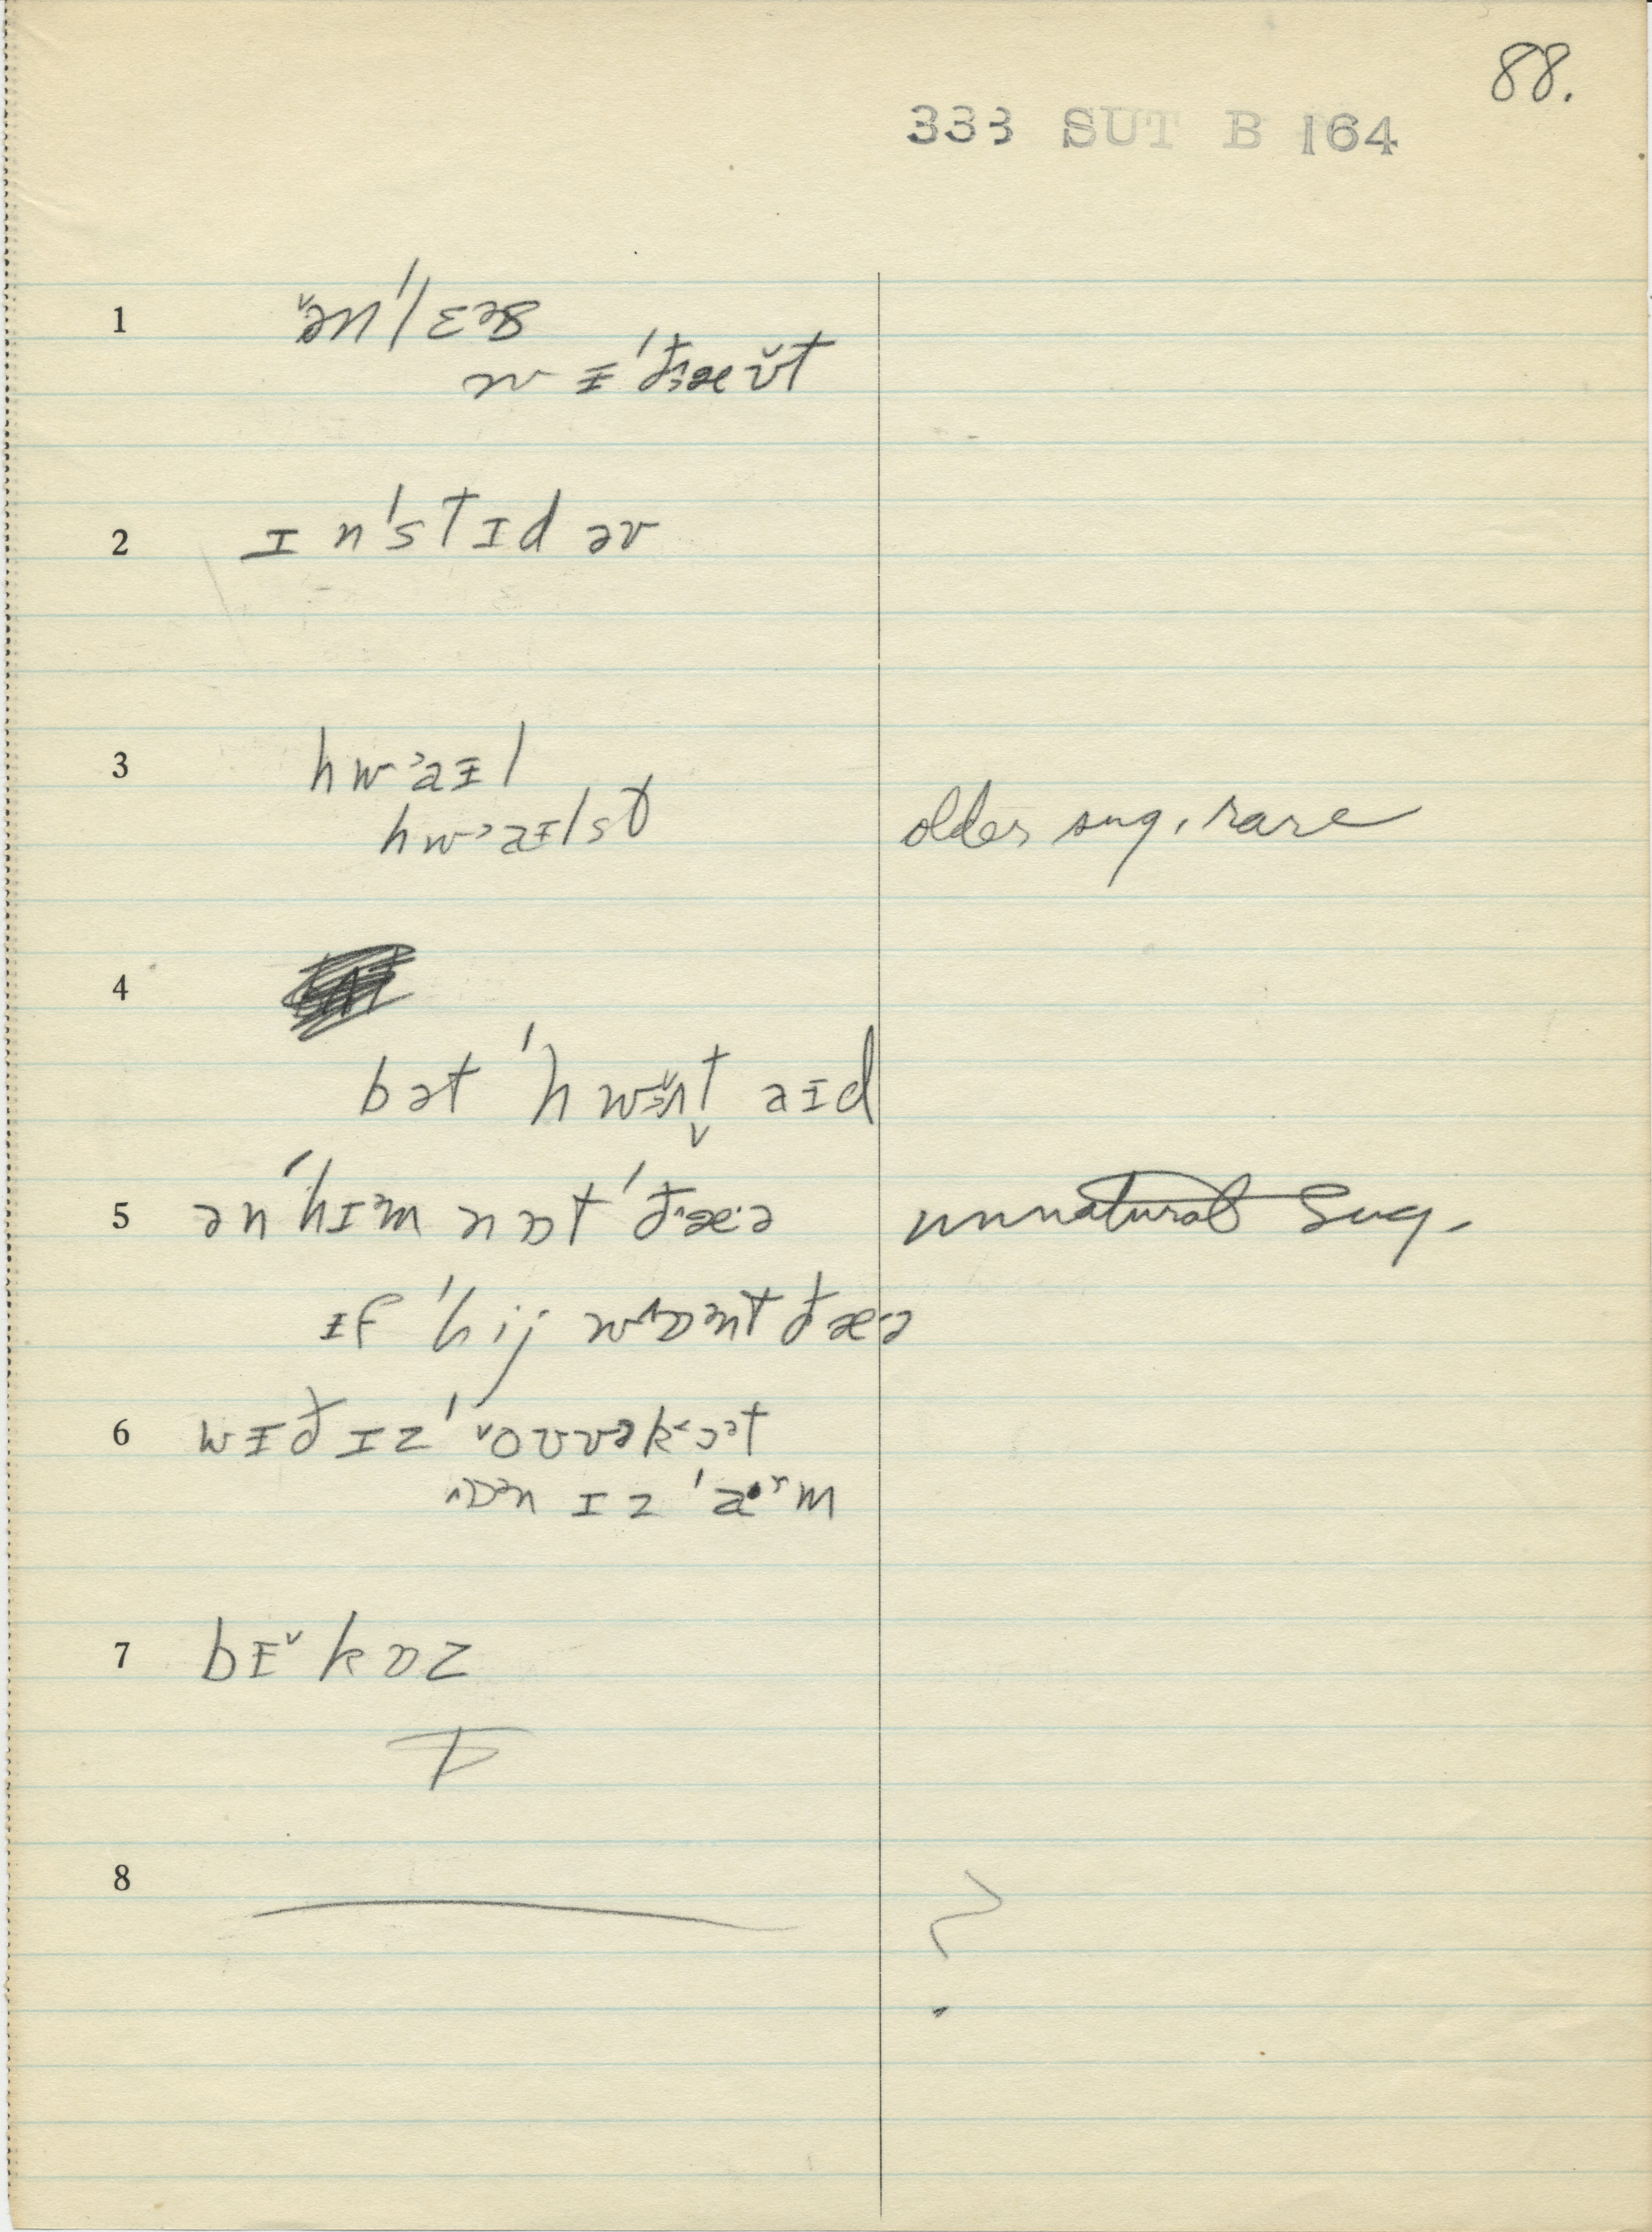 88.
333 SUT B 164
1 ˇən'lɛəs
wɪ'ðæʊ̌t
2 ɪn'stɪd əv
3 hwaɪl
hwaɪlst older sug, rare
4
bət 'hwɛ̌nt aɪd
5 ən'hɪm nɒt 'ðæ·ə unnatural Sug.
ɪf 'hij wɒənt ðæ·ə
6 wɪð ɪz 'ˇoʊvəkɒət
ɒn ɪz 'a·ʳm
7 bɪˇkɒz
8 ?